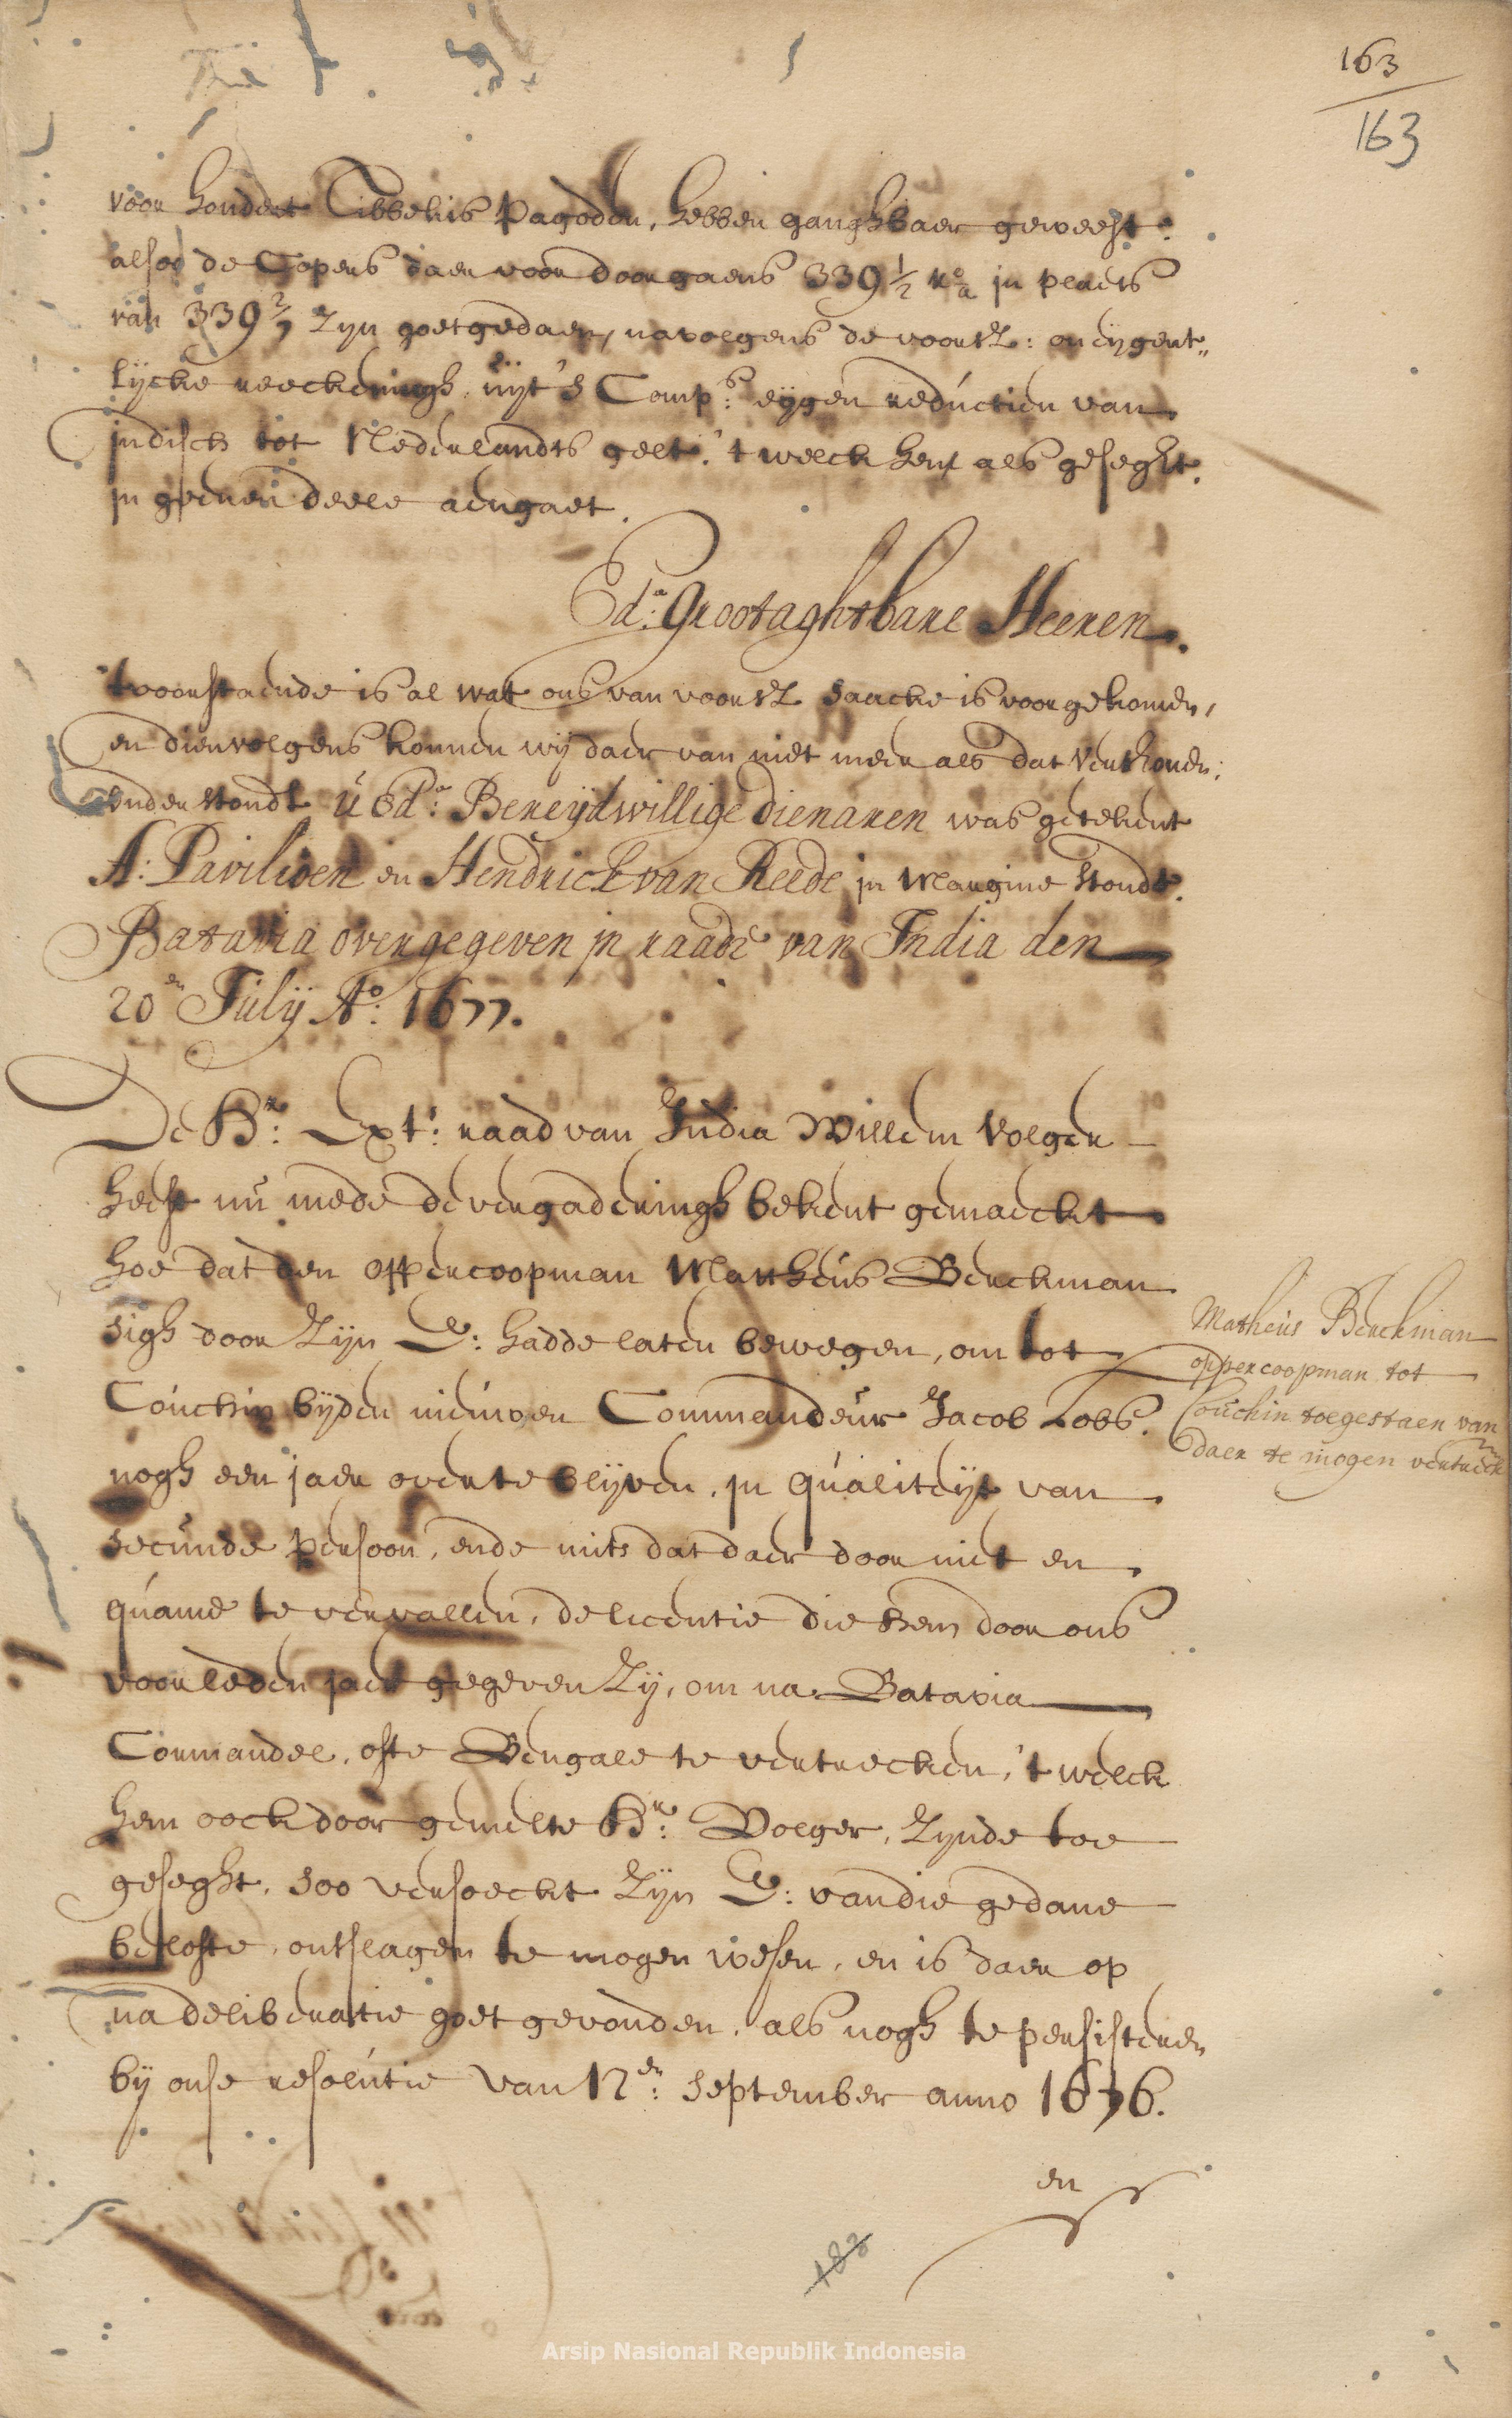 163
163
voor hondert Tibbekis Pagoden, hebben ganghbaer geweest
alsoo de Copers daer voor doorgaens 339½ Ra in plaets
van 339 2/7 zyn goetgedaen, navolgens de voorsz: oneygent„
lycke reeckeningh uyt 's Comps: eygen reductien van
indisch tot Nederlandts gelt, 't welck hem als geseght
in geenen deele aengaet.
Ed.a Grootaghtbare Heeren.
't voorstaende is al wat ons van voorsz saacke is voorgekomen,
en dienvolgens konnen wij daer van niet meer als dat verthonen:
onderstondt U Ed.a Bereijdwillige dienaren was getekent
A: Pavilioen en Hendrick van Reede in margine stondt
Batavia overgegeven in raade van India den
20en Julij Ao: 1677.
De Hr: Ext: raad van India Willem Volger
heeft nu mede de vergaderingh bekent gemaeckt
hoe dat den oppercoopman Mattheus Berckman
sigh door zijn E: hadde laten bewegen, om tot
Couchin bijden nieuwen Commandeur Jacob Lobs
nogh een jaer over te blijven, in qualiteijt van
secunde persoon, ende mits dat daer door niet en
quame te vervallen, de licentie die hem door ons
voorleden jaer gegeven zij, om na Batavia
Cormandel, ofte Bengale te vertrecken, 't welck
hem oock door gemelte Hr: Volger, zynde toe
geseght, soo versoeckt zijn E: van die gedane
belofte, ontslagen te mogen wesen, en is daer op
na deliberatie goet gevonden, als nogh te persisteren
bij onse resolutie van 17en: september anno 1676.
en
Matheus Berckman
oppercoopman tot
Couchin toegestaen van
daer te mogen vertreck
183
Arsip Nasional Republik Indonesia